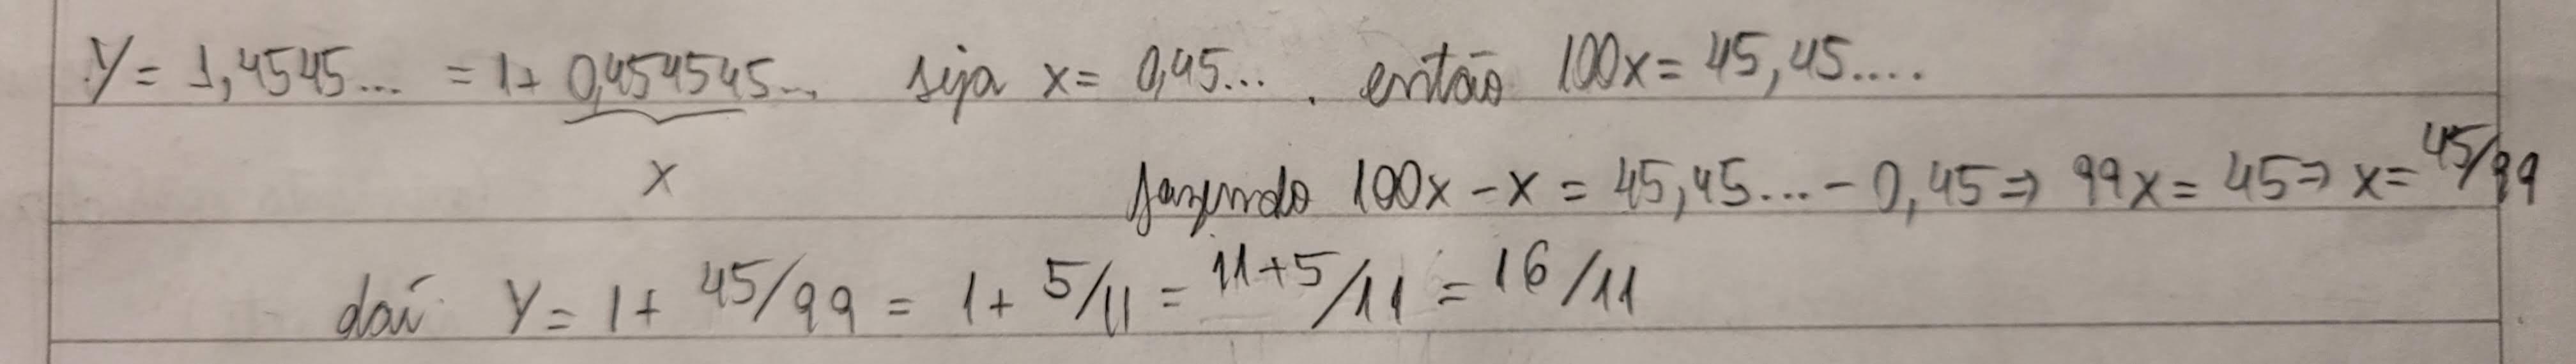 y = 1,4545... = 1 + 0,454545... seja x = 0,45... . então 100x = 45,45....
x
fazendo 100x - x = 45,45... - 0,45 ⇒ 99x = 45 ⇒ x = 45/99
daí y = 1 + 45/99 = 1 + 5/11 = 11+5/11 = 16/11